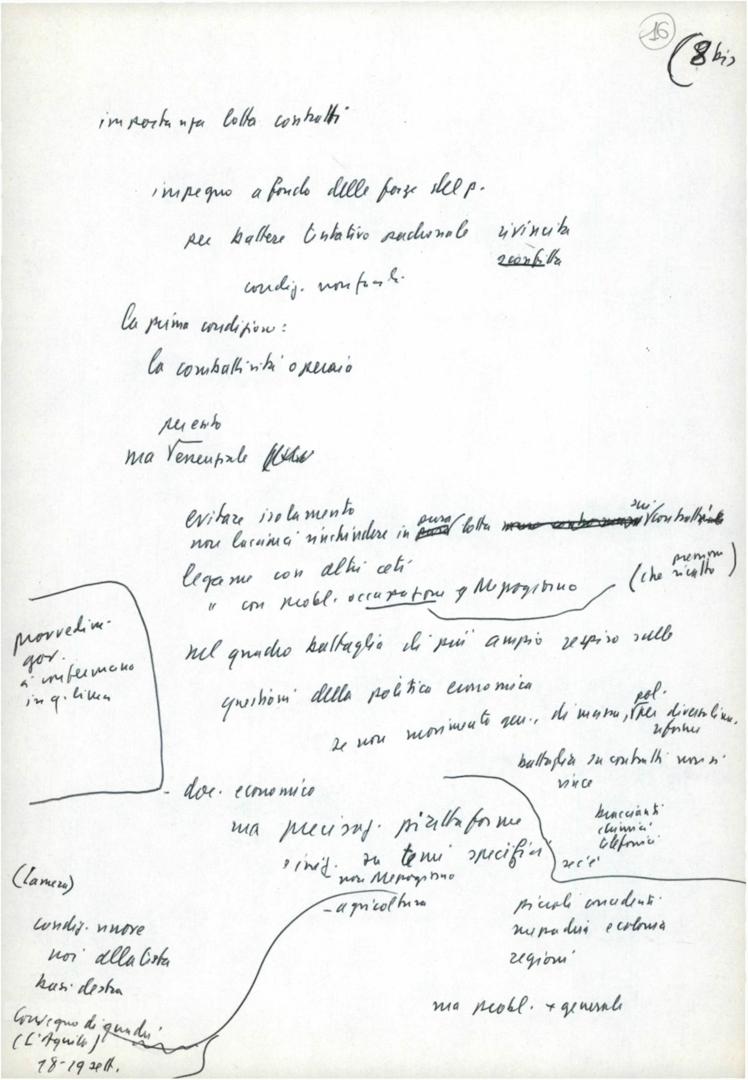 16
(8 bis
importanza lotta contratti
impegno a fondo delle forze del p.
per battere tentativo padronale rivincita
sconfitta
condiz. non facili
la prima condizione:
la combattività operaia
per esito
ma essenziale
evitare isolamento
non lasciarci rinchiudere in pura lotta sui contratti
legame con altri ceti
" con probl. occupazione e Mezzogiorno
(che risulto)
nel quadro battaglia di più ampio respiro sulle
questioni della politica economica
se non movimento gen., di massa, pol. per diversa linea,
riforme
battaglia su contratti non si
vince
provvedim.
gov.
ci confermano
in q. linea
- doc. economico
ma precisaz. piattaforme
iniz. su temi specifici
non Mezzogiorno
- agricoltura
braccianti
chimici
telefonici
ecc.
piccoli
e colonia
regioni
ma probl. + generale
(Lama)
condiz. nuove
noi alla testa
basi destra
Convegno di quadri
(L'Aquila)
18-19 sett.